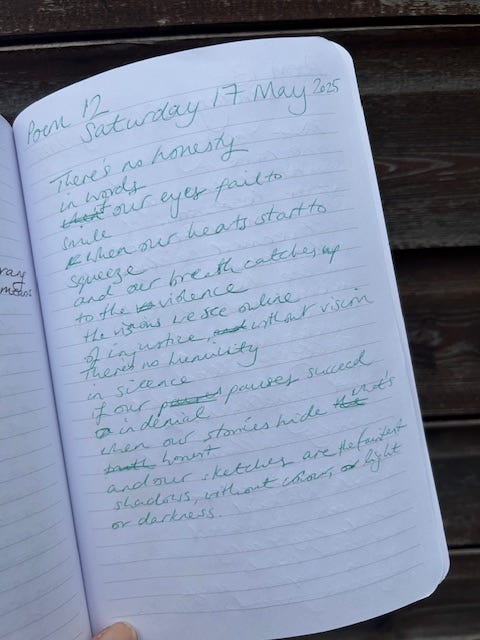 Poem 12
Saturday 17 May 2025
There's no honesty
in words
our eyes fail to
smile
when our heats start to
squeeze
and our breath catches up
to the violence
the visions we see online
of injustice, without vision
There's no humility
in silence
if our pauses succeed
in denial
when our stories hide what's
honest
and our sketches are the faintest
shadows, without colour, light
or darkness.
rary